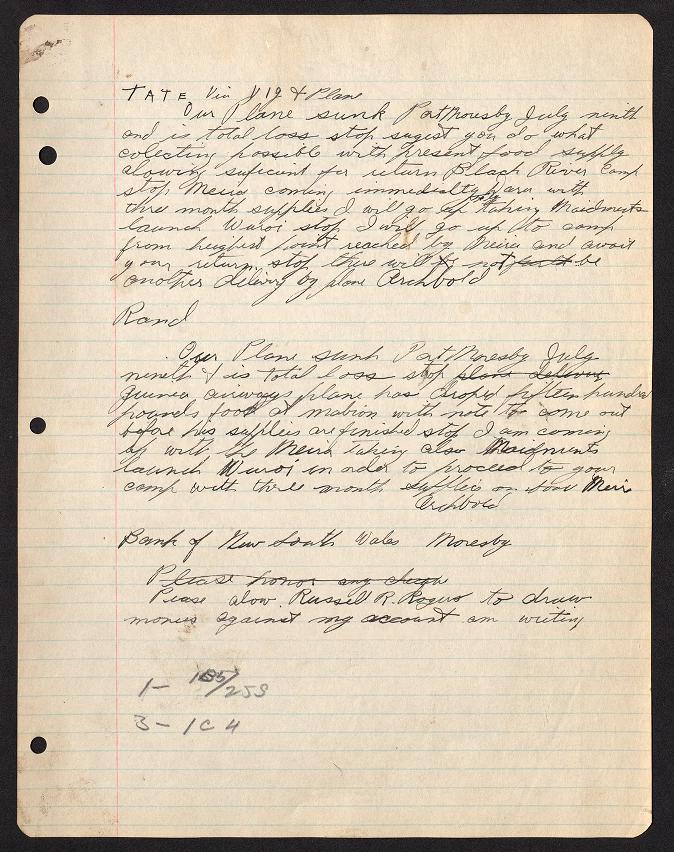 TATE Via V19 & Plane
Our Plane sunk Port Moresby July ninth
and is total loss stop sugist you do what
colecting possible with present food supply
alowing suficient for return Black River Camp
stop Meira coming immediatly with
three month supplies I will go up taking Maidments
launch Waroi stop I will go up to camp
from heighest point reached by Meira and await
your return stop there will not be
another delivery by plane Archbold
Rand
Our Plane sunk Port Moresby July
nineth & is total loss stop plane delivery
Guinea airways plane has droped fifteen hundred
pounds food at mabion with note to come out
before his supplies are finished stop I am coming
up with the Meira taking also Maidments
launch Waroi in order to proceed to your
camp with three month supplies on Meira
Archbold
Bank of New South Wales Moresby
Please honor any cheque
Please alow Russell R. Rogers to draw
monies against my account am writing
1- 1B5/253
3- 1C4